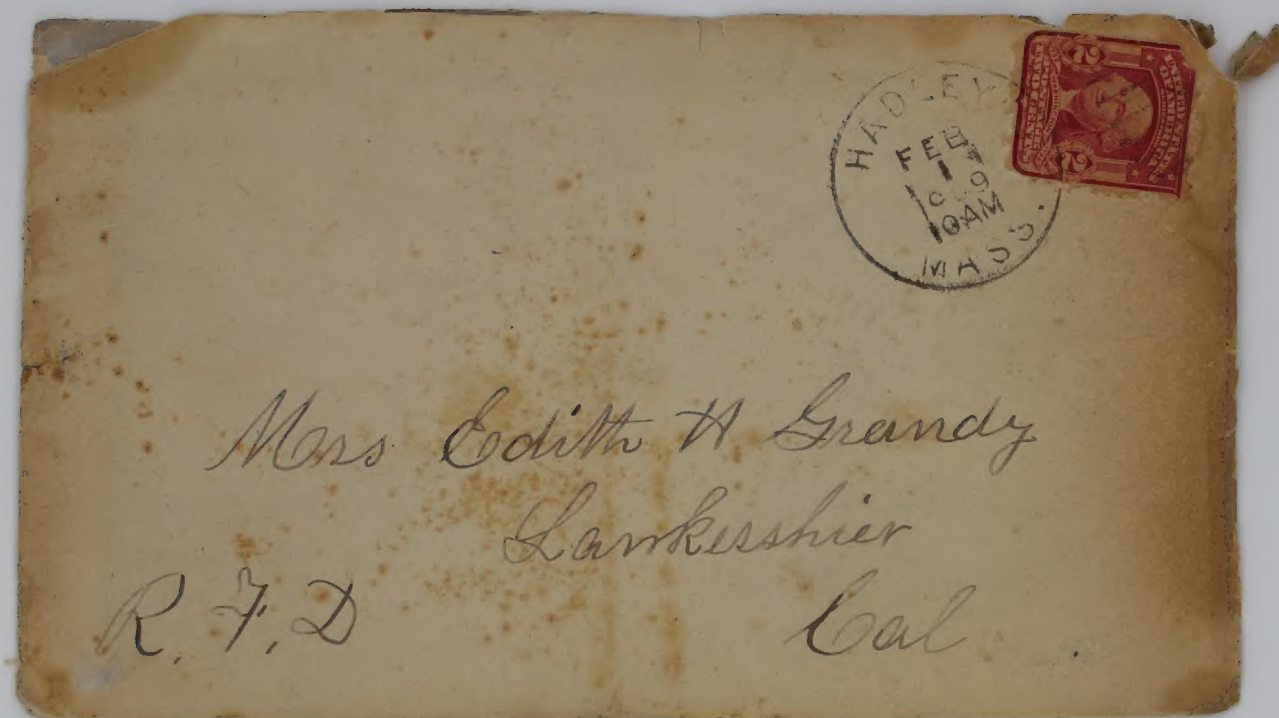 HADLEY
FEB
1
9
10AM
MASS.
2 2
Mrs Edith H Grandy
Lankershier
R. F. D
Cal